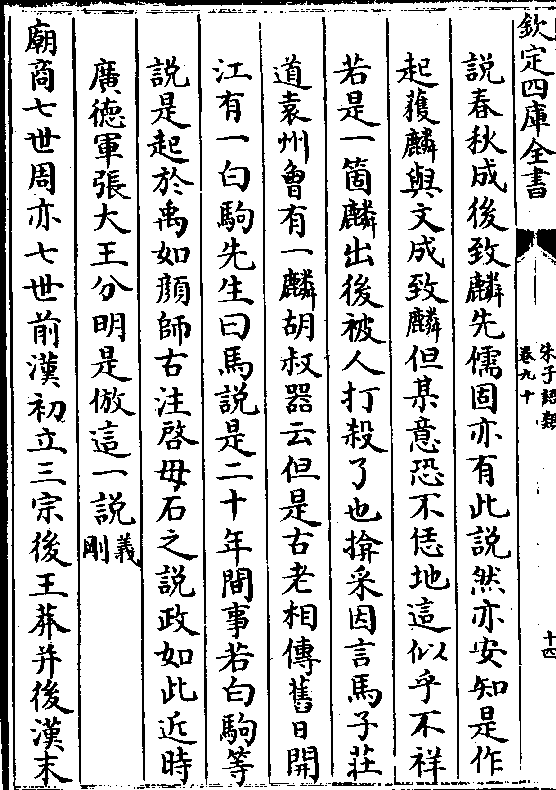 欽定四庫全書
朱子語類
卷九十
十四
說春秋成後致麟先儒固亦有此說然亦安知是作
起獲麟與文成致麟但某意恐不恁地這似乎不祥
若是一箇麟出後被人打殺了也揜采因言馬子莊
道袁州曾有一麟胡叔器云但是古老相傳舊日開
江有一白駒先生曰馬說是二十年間事若白駒等
說是起於禹如顔師古注啓母石之說政如此近時
廣德軍張大王分明是倣這一說義剛
廟商七世周亦七世前漢初立三宗後王莽并後漢末